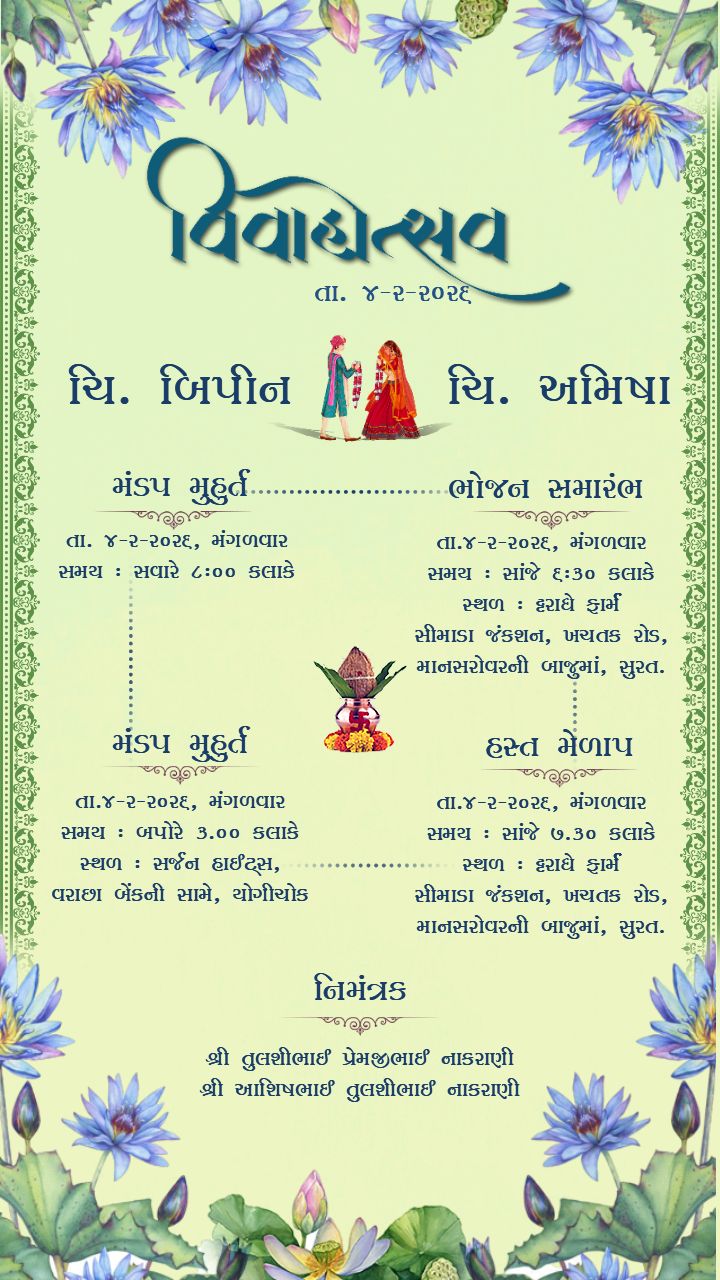 વિવાહોત્સવ
તા. ૪-૨-૨૦૨૬
ચિ. બિપીન
ચિ. અમિષા
મંડપ મુહુર્ત
તા. ૪-૨-૨૦૨૬, મંગળવાર
સમય : સવારે ૮:૦૦ કલાકે
ભોજન સમારંભ
તા.૪-૨-૨૦૨૬, મંગળવાર
સમય : સાંજે ૬:૩૦ કલાકે
સ્થળ : ફાર્મ
સીમાડા જંકશન, ખચતક રોડ,
માનસરોવરની બાજુમાં, સુરત.
મંડપ મુહુર્ત
તા.૪-૨-૨૦૨૬, મંગળવાર
સમય : બપોરે ૩.૦૦ કલાકે
સ્થળ : સર્જન હાઈટ્સ,
વરાછા બેંકની સામે, યોગીચોક
હસ્ત મેળાપ
તા.૪-૨-૨૦૨૬, મંગળવાર
સમય : સાંજે ૭.૩૦ કલાકે
સ્થળ : ફાર્મ
સીમાડા જંકશન, ખચતક રોડ,
માનસરોવરની બાજુમાં, સુરત.
નિમંત્રક
શ્રી તુલશીભાઈ પ્રેમજીભાઈ નાકરાણી
શ્રી આશિષભાઈ તુલશીભાઈ નાકરાણી